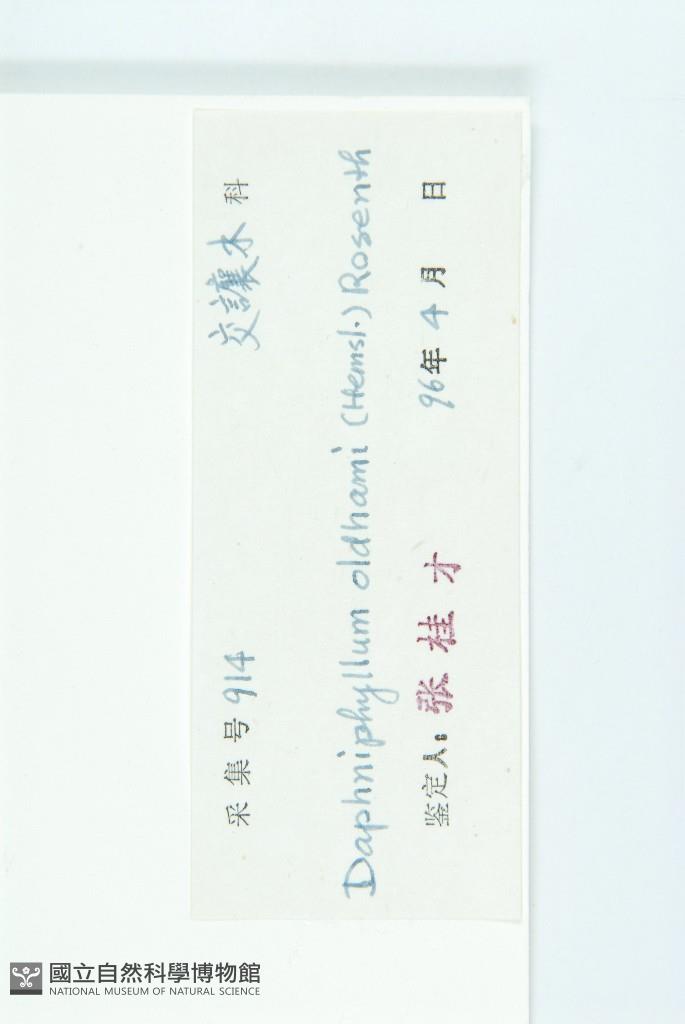 采集号 914 交讓木 科
Daphniphyllum oldhami (Hemsl.) Rosenth
鉴定人: 张桂才 96年 4 月 日
國立自然科學博物館
NATIONAL MUSEUM OF NATURAL SCIENCE